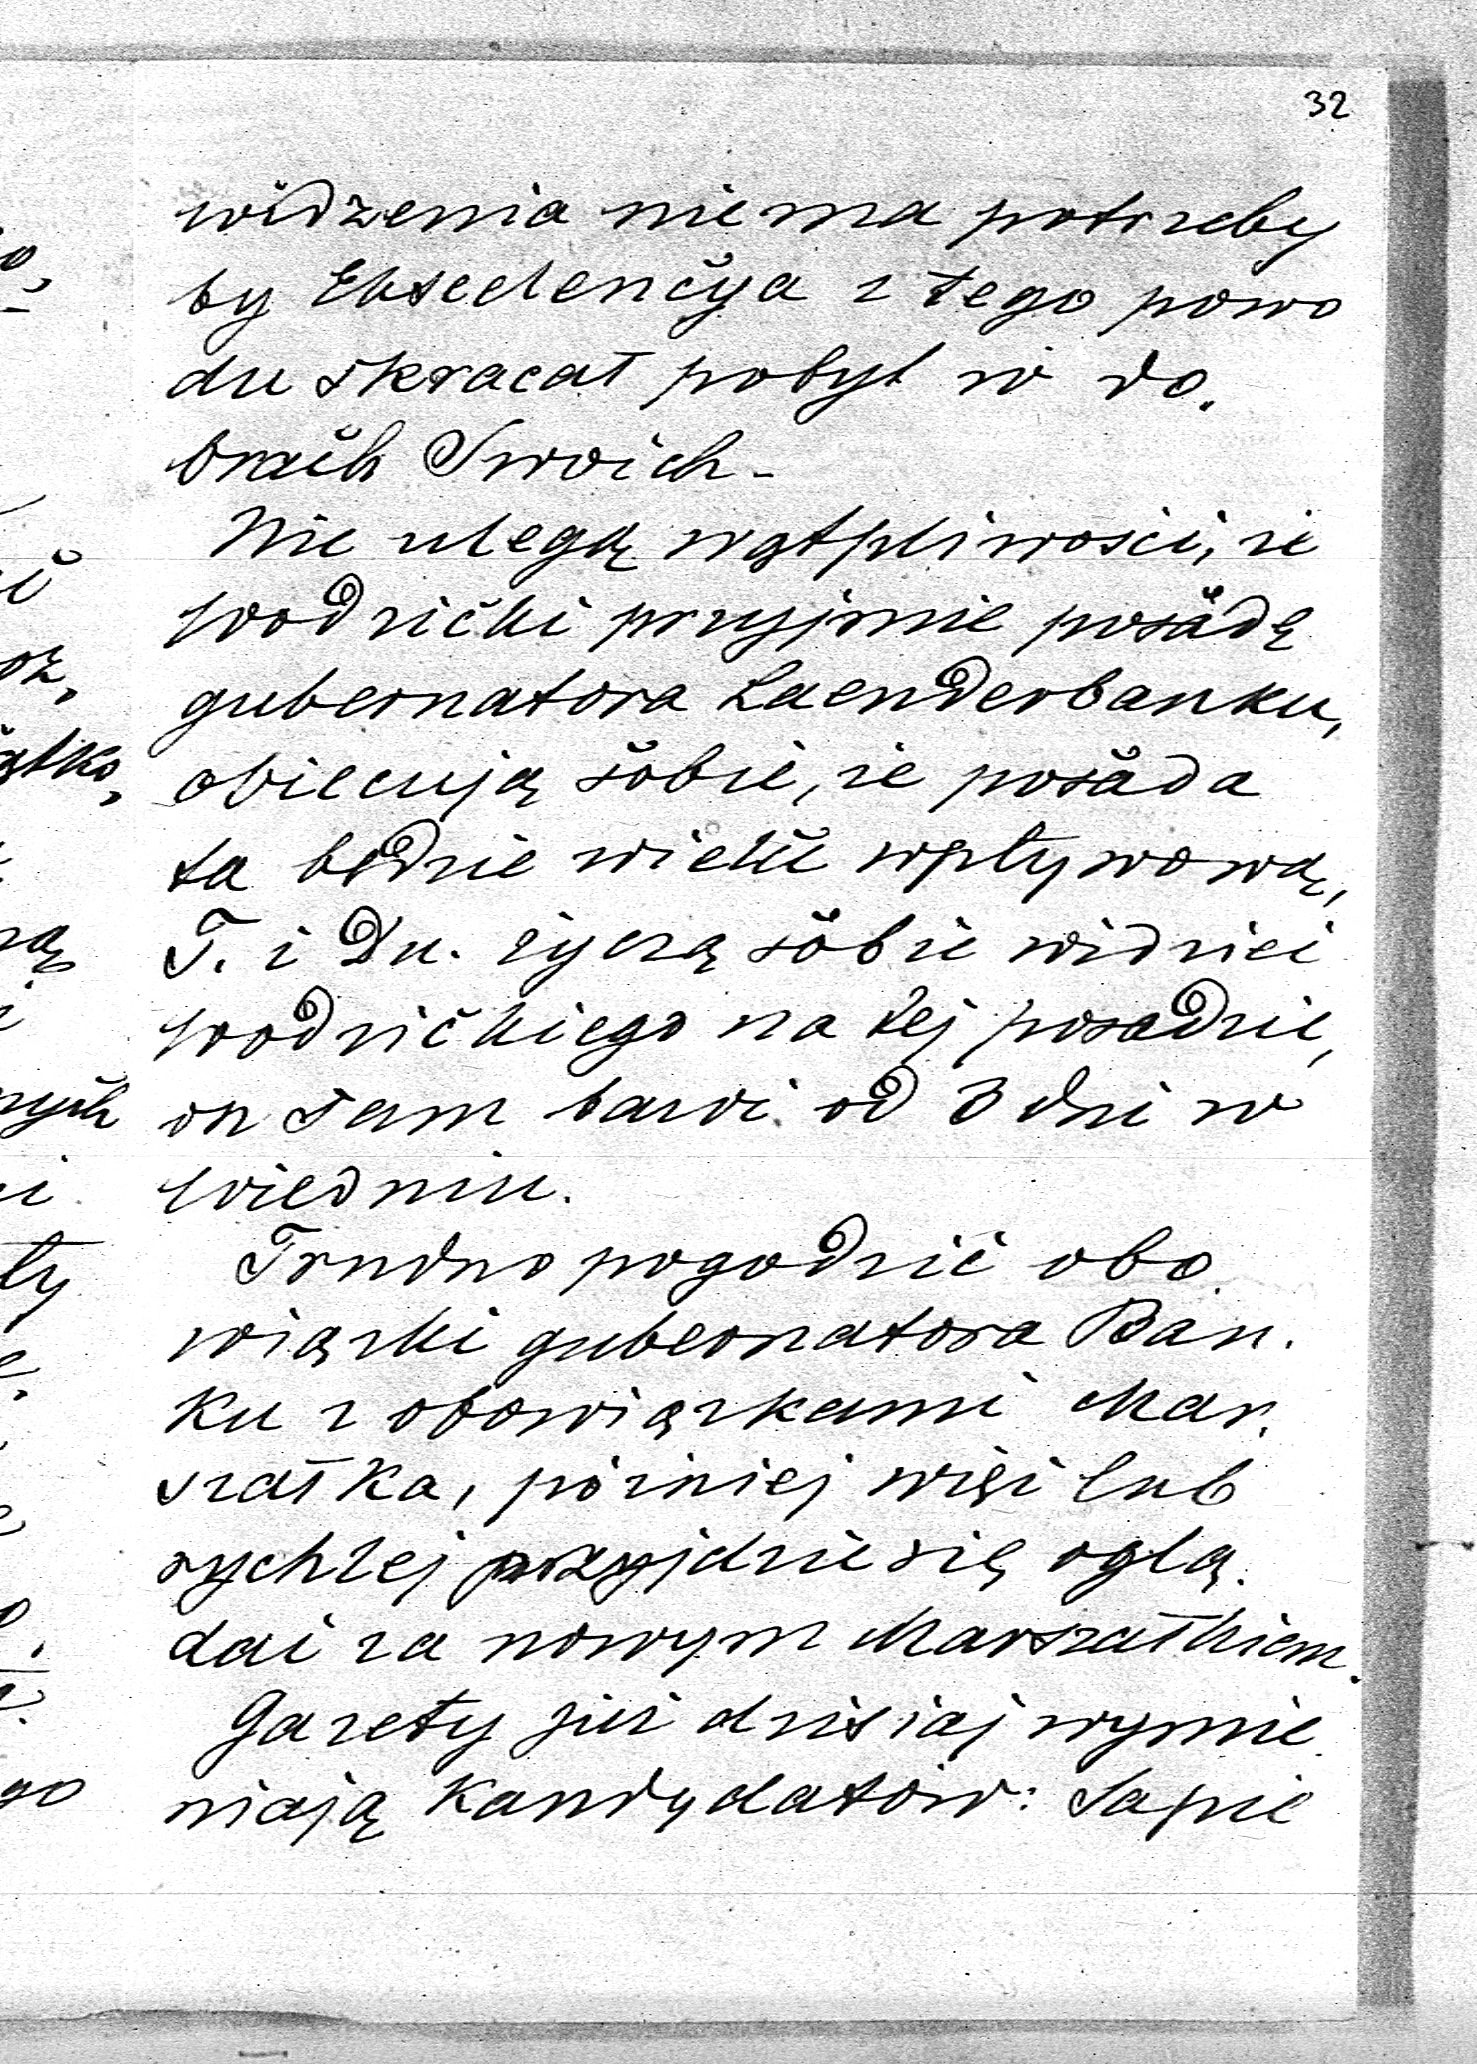 32
widzenia nie ma potrzeby
by Ekscelencya z tego powo
du skracał pobyt w do.
brach Swoich -
Nie ulega wątpliwości, że
Wodzicki przyjmie posadę
gubernatora Laenderbanku,
obiecują sobie, że posada
ta będzie wielce wpływową,
T. i Du. życzą sobie widzieć
Wodzickiego na tej posadzie,
on sam bawi od 3 dni w
Wiedniu.
Trudno pogodzić obo
wiązki gubernatora Ban.
ku z obowiązkami Mar.
szałka, później więc lub
rychlej przyjdzie się oglą.
dać za nowym Marszałkiem.
Gazety już dzisiaj wymie
niają kandydatów: Sapie